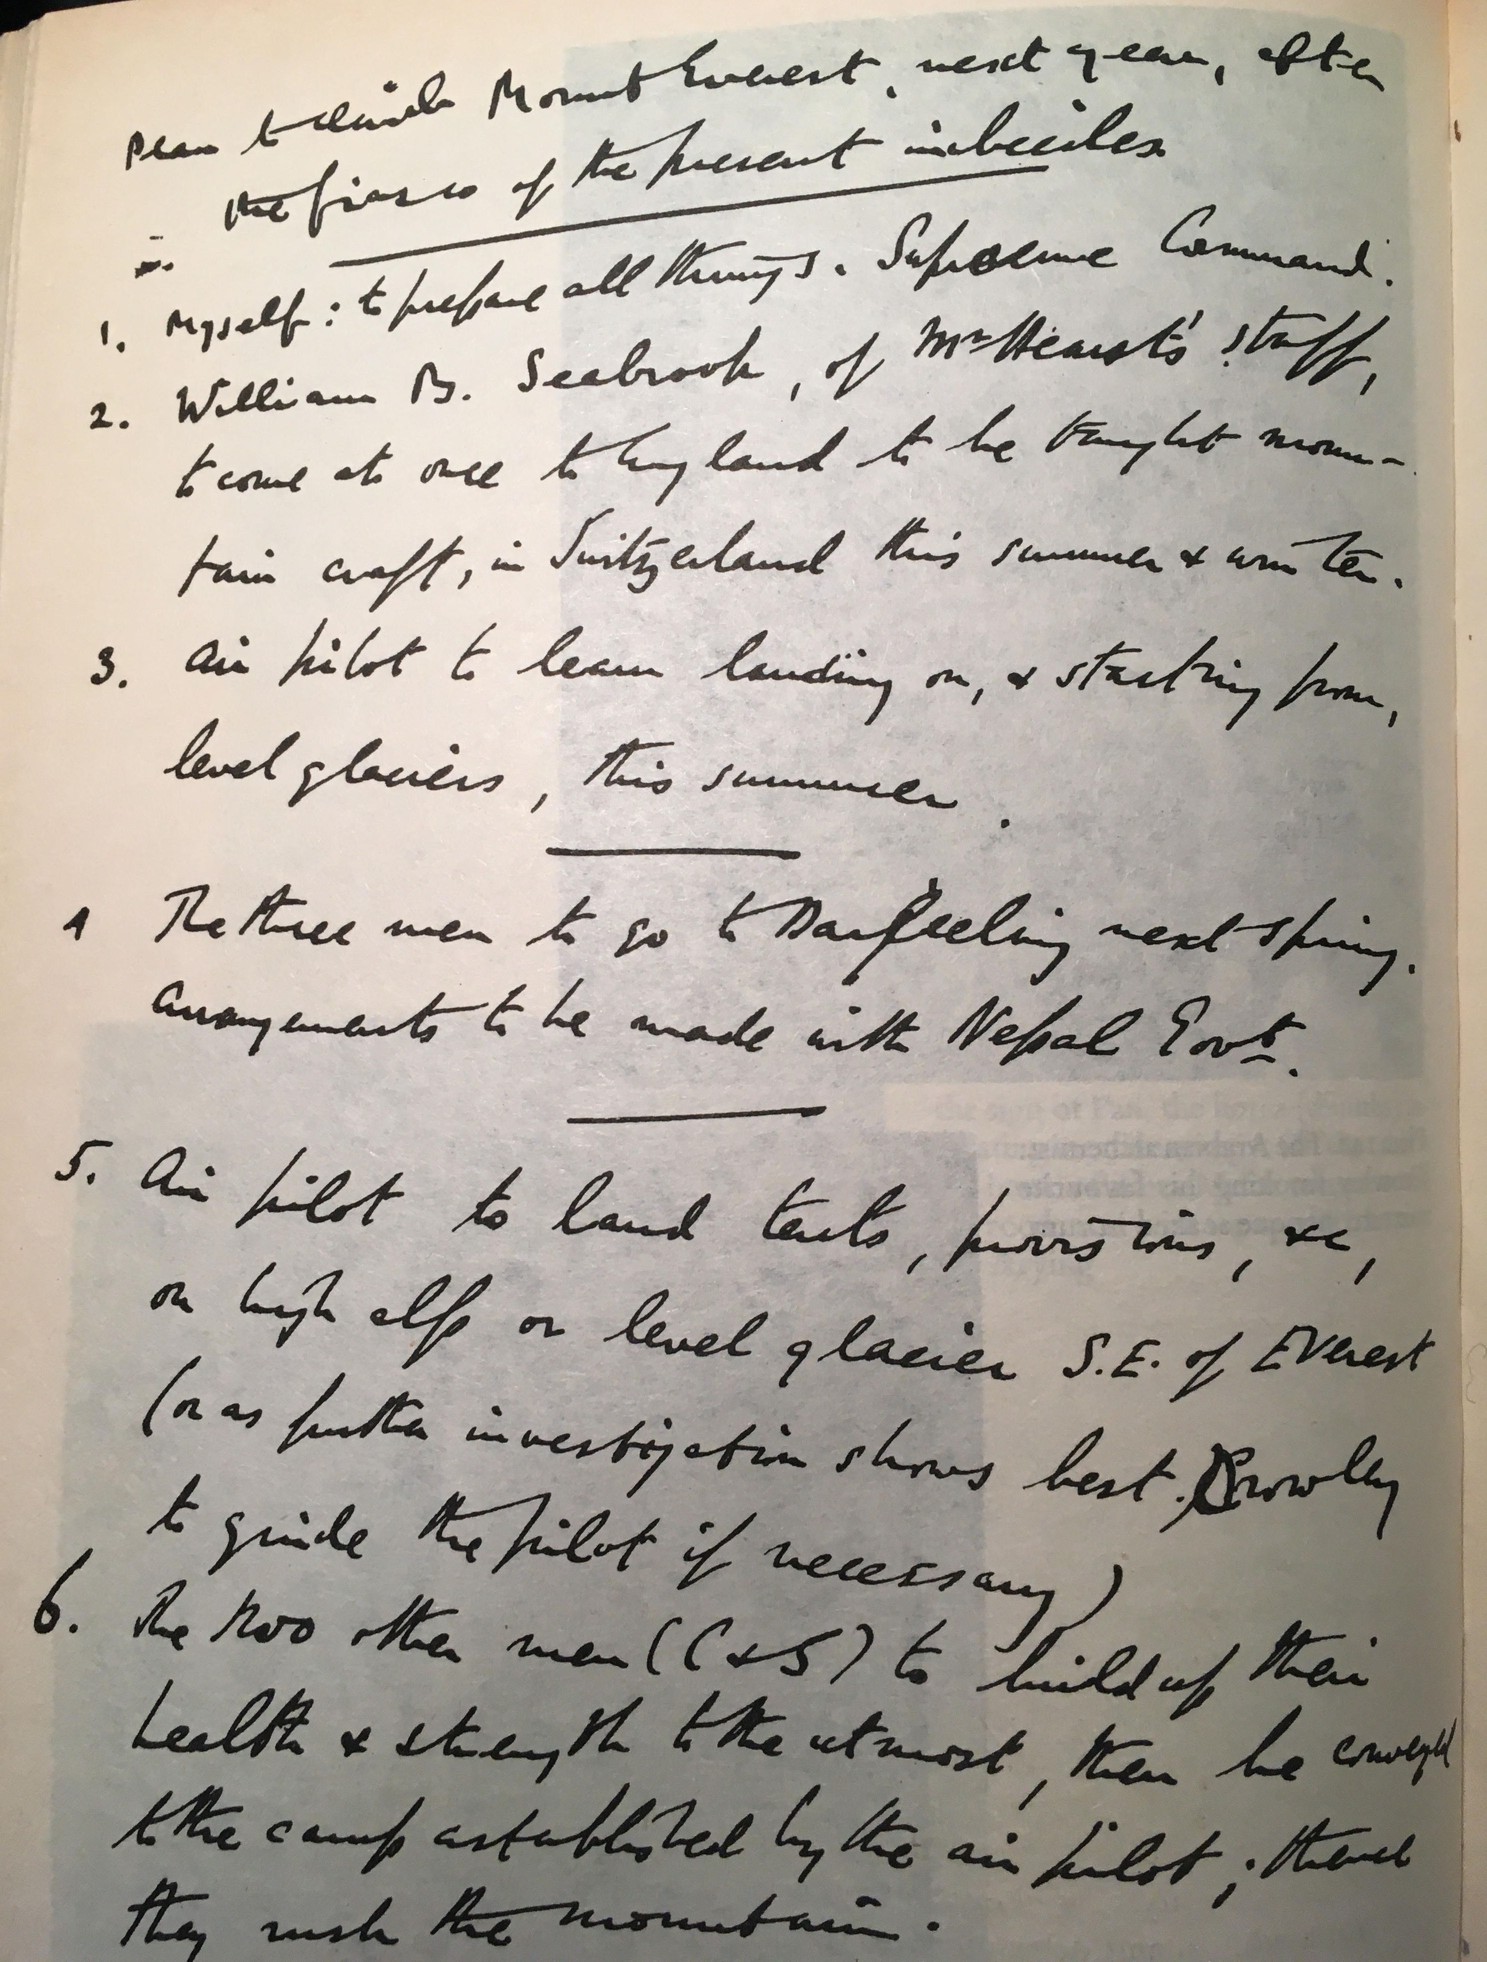 Plan to climb Mount Everest, next year, after
the fiasco of the present imbeciles
1. Myself: to prepare all things. Supreme Command.
2. William B. Seabrook, of Mr Hearst's staff,
to come at once to England to be taught moun-
tain craft, in Switzerland this summer & winter.
3. Air pilot to learn landing on, & starting from,
level glaciers, this summer.
4 The three men to go to Darjeeling next spring.
Arrangements to be made with Nepal Govt.
5. Air pilot to land tents, provisions, &c,
on high alp or level glacier S.E. of Everest
(or as further investigation shows best. Crowley
to guide the pilot if necessary)
6. The two other men (C & S) to build up their
health & strength to the utmost, then be conveyed
to the camp established by the air pilot; thence
they rush the mountain.